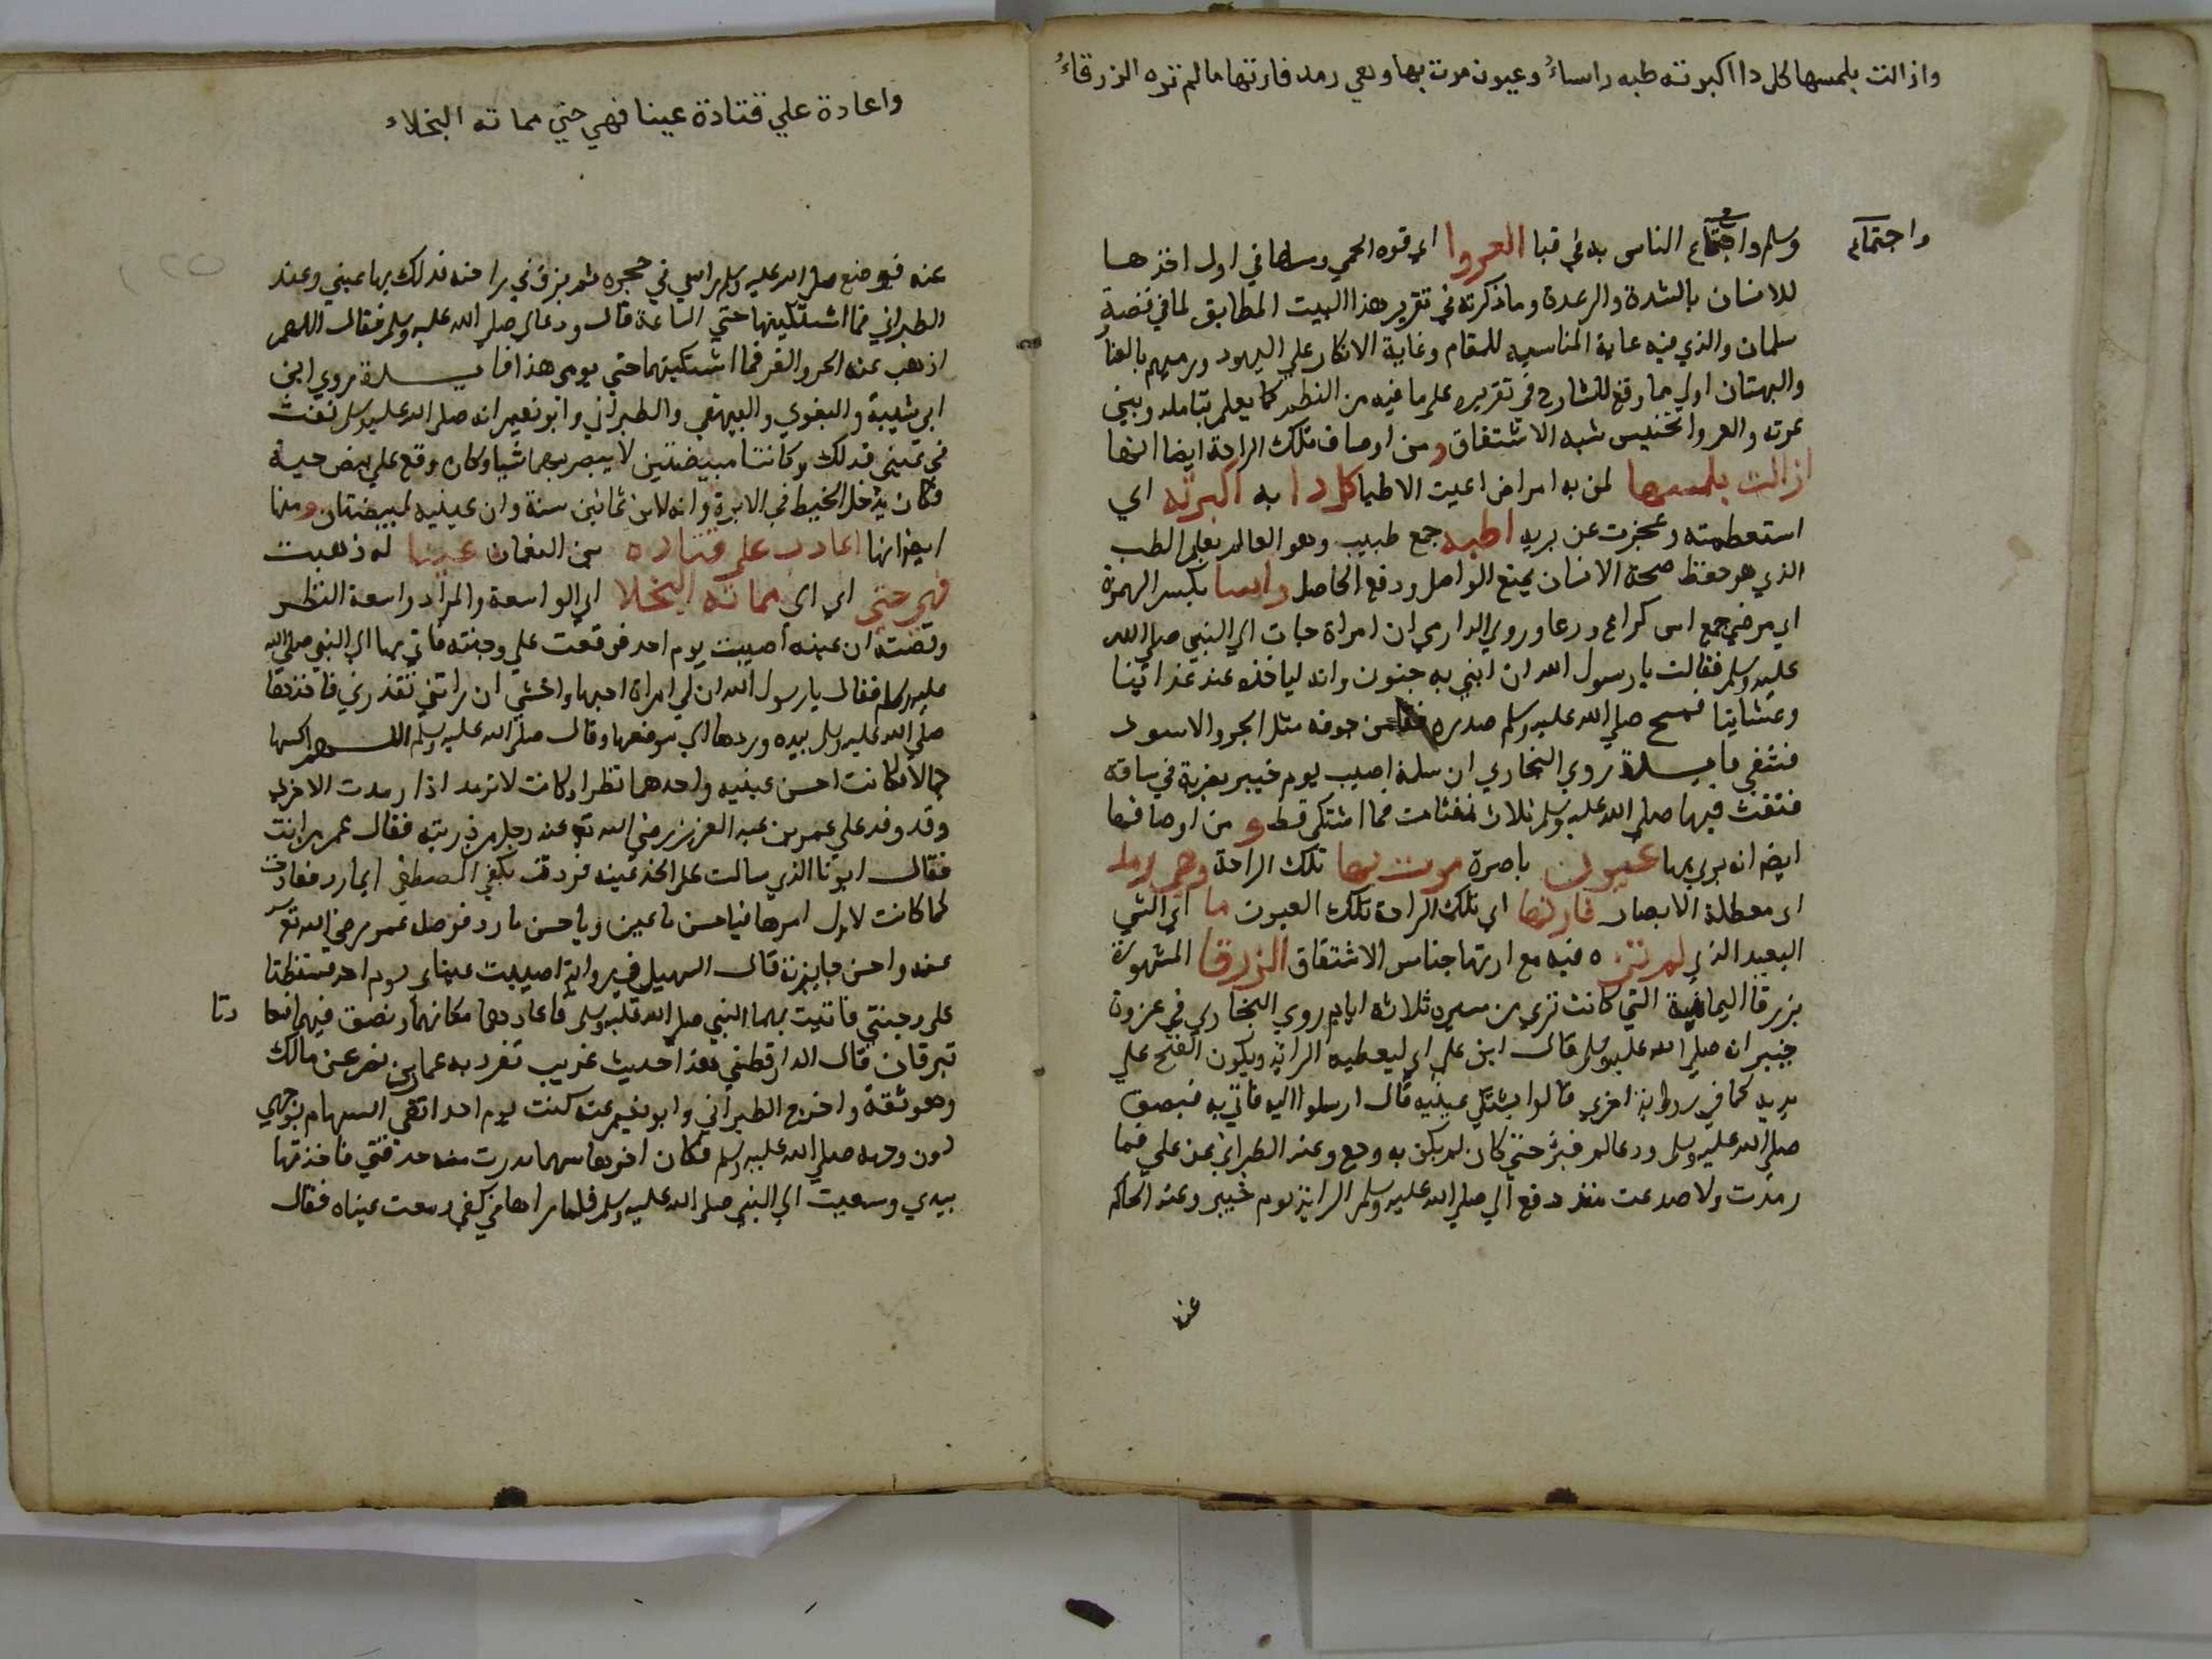 وازالت بلمسها كل داا اكبرته طبه واساءُ وعيون مرت بها وهي رمد فارتها مالم تره الزرقاءُ
واجتماع
وسلم واجتماع الناس به في قبا العروا اي قوه الحمي ومسها في اول اخذها
للانسان بالشدة والرعدة وما ذكرته في تقرير هذا البيت المطابق لما في قصة
سلمان والذي فيه غاية المناسبه للمقام وغاية الانكار علي اليهود ورميهم بالعنا
والبهتان اولي مما وقع للشارح في تقريره علي ما فيه من النظر كما يعلم بتامله وبين
عرته والعروا تجنيس شبه الاشتقاق ومن اوصاف تلك الراحة ايضا انها
ازالت بلمسها لمن به امراض اعيت الاطبا كل دا به اكبرته اي
استعظمته وعجزت عن بريه اطبه جمع طبيب وهو العالم بعلم الطب
الذي هو حفظ صحة الانسان بمنع الواصل ودفع الحاصل واسا بكسر الهمزة
اي مرضي جمع اس كراع ورعا وروي الدارمي ان امراة جات الي النبي صلي الله
عليه وسلم فقالت يا رسول الله ان ابني به جنون وانه لياخذه عند غداينا
وعشاينا فمسح صلي الله عليه وسلم صدره من جوفه مثل الجرو الاسود
فشفي فايدة روي البخاري ان سلمة اصيب يوم خيبر بضربة في ساقه
فنفث فيها صلي الله عليه وسلم ثلاث نفثات فما اشتكي قط ومن اوصافها
ايضا انه بري بها عيون باصرة مرت بها تلك الراحة وهي رمد
اي معطلة الابصار فارتها اي تلك الراحة تلك العيون ما اي الشي
البعيد الذي لم تره فيه مع ارتها جناس الاشتقاق الزرقا المشهورة
بزرقا اليمامة التي كانت تري من مسيره ثلاثه ايام روي البخاري في غزوة
خيبر انه صلي الله عليه وسلم قال اين علي اي ليعطيه الراية ويكون الفتح علي
يديه كما في رواية اخري قالوا يشتكي عينيه قال ارسلوا اليه فاتي به فبصق
صلي الله عليه وسلم ودعا له فبرئ حتي كان لم يكن به وجع وعند الطبراني عن علي فما
رمدت ولا صدعت منذ دفع الي صلي الله عليه وسلم الراية يوم خيبر وعند الحاكم
عنه
واعادة علي قتادة عينا فهي حتي مماته النجلاء
عنه فوضع صلي الله عليه وسلم راسي في حجره ثم بزق في راحته فدلك بها عيني وعند
الطبراني فما اشتكيتها حتي الساعة قال ودعا لي صلي الله عليه وسلم فقال اللهم
اذهب عنه الحر والقر فما اشتكيتهما حتي يومي هذا فايدة روي ابن
ابي شيبة والبغوي والبيهقي والطبراني وابو نعيم انه صلي الله عليه وسلم نفث
في عيني فديك وكانتا مبيضتين لا يبصر بهما شيا وكان وقع علي بيض حية
فكان يدخل الخيط في الابرة وانه لابن ثمانين سنة وان عينيه لمبيضتان ومنها
ايضا انها اعادت علي قتادة بن النعمان عينا له ذهبت
فهي حتي اي الي مماته النجلا اي الواسعة والمراد واسعة النظر
وقصته ان عينه اصيبت يوم احد فوقعت علي وجنته فاتي بها الي النبي صلي الله
عليه وسلم فقال يا رسول الله ان لي امراة احبها واخشي ان راتني تقذرني فاخذها
صلي الله عليه وسلم بيده وردها الي موضعها وقال صلي الله عليه وسلم اللهم اكسها
جمالا فكانت احسن عينيه واحدهما نظرا وكانت لا ترمد اذا رمدت الاخري
وقد وفد علي عمر بن عبد العزيز رضي الله تع عنه رجل من ذريته فقال عمر من انت
فقال ابونا الذي سالت علي الخد عينه فردت بكف المصطفي ايما رد فعادت
كما كانت لاول امرها فيا حسن ما عين ويا حسن ما رد فوصل عمر رضي الله تع
عنه واحسن جايزته قال السهيلي في رواية اصيبت عيناي يوم احد فسقطتا
علي وجنتي فاتيت بهما النبي صلي الله عليه وسلم فاعادهما مكانهما وبصق فيهما فعادتا
تبرقان قال الدارقطني هذا حديث غريب تفرد به عمار بن نصر عن مالك
وهو ثقة واخرج الطبراني وابو نعيم عنه كنت يوم احد اتقي السهام بوجهي
دون وجهه صلي الله عليه وسلم فكان اخرها سهما ندرت منه حدقتي فاخذتها
بيدي وسعيت الي النبي صلي الله عليه وسلم فلما راها في كفي دمعت عيناه فقال